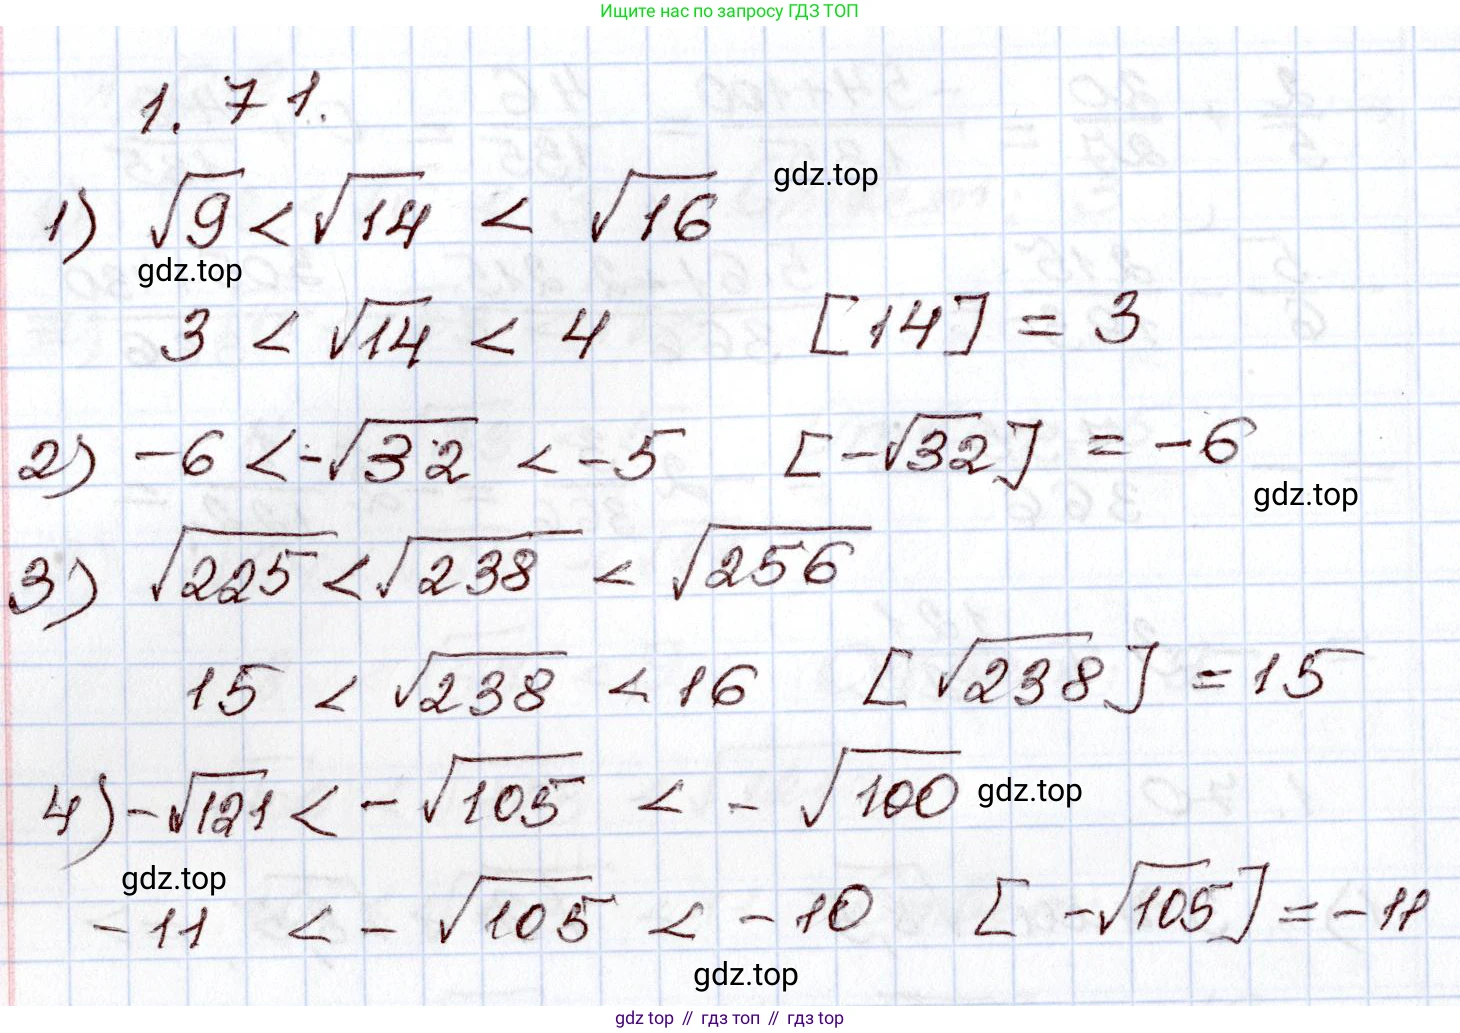 Ищите нас по запросу ГДЗ ТОП
1.71.
1) √9 < √14 < √16
gdz.top
gdz.top
3 < √14 < 4 [14] = 3
2) -6 < -√32 < -5 [-√32] = -6
gdz.top
3) √225 < √238 < √256
15 < √238 < 16 [√238] = 15
4) -√121 < -√105 < -√100
gdz.top
gdz.top
-11 < -√105 < -10 [-√105] = -11
gdz.top
gdz top // гдз топ // гдз top